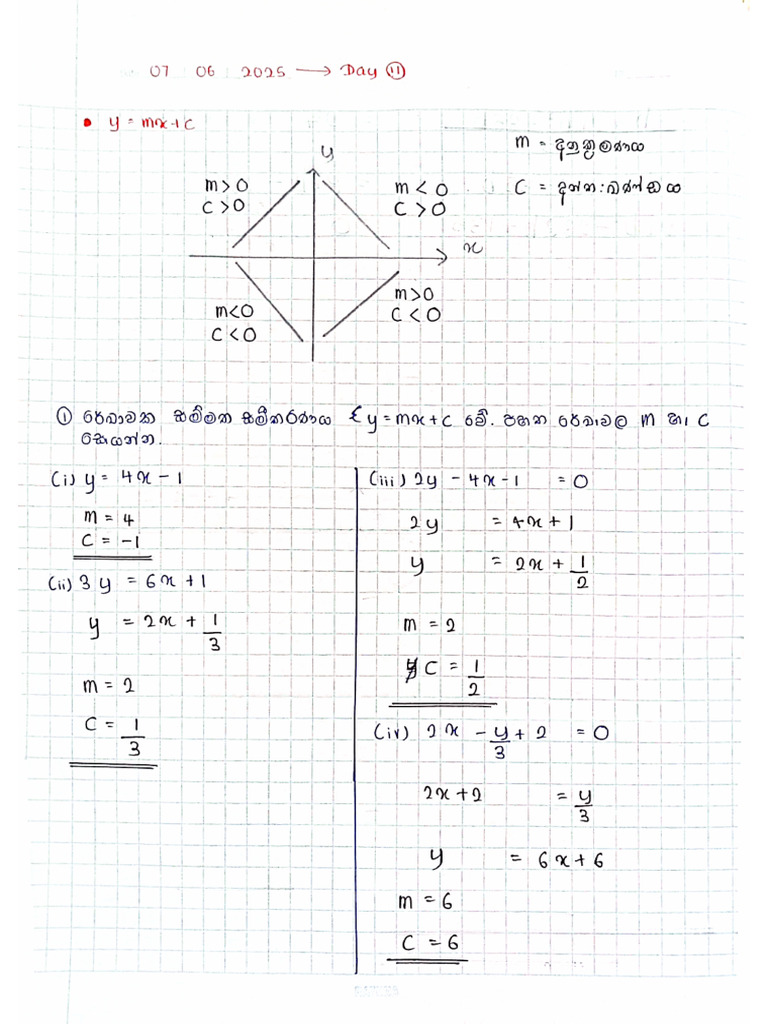 07 | 06 | 2025 → Day ⑪
• y = mx + c
y
m = අනුක්‍රමණය
m > 0
c > 0
m < 0
c > 0
c = අන්ත:ඛණ්ඩය
x
m < 0
c < 0
m > 0
c < 0
① රේඛාවක සම්මත සමීකරණය { y = mx + c වේ. පහත රේඛාවල m හා c
සොයන්න.
(i) y = 4x - 1
m = 4
c = -1
(ii) 3y = 6x + 1
y = 2x + 1/3
m = 2
c = 1/3
(iii) 2y - 4x - 1 = 0
2y = 4x + 1
y = 2x + 1/2
m = 2
c = 1/2
(iv) 2x - y/3 + 2 = 0
2x + 2 = y/3
y = 6x + 6
m = 6
c = 6